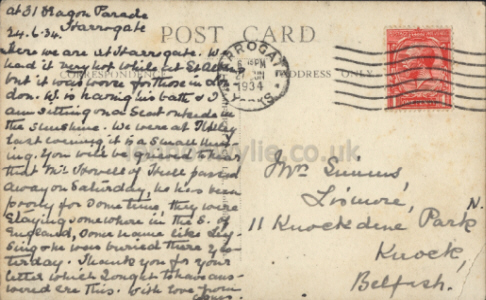 at 31 Dragon Parade
Harrogate
24.6.34.
POST CARD
CORRESPONDENCE
ADDRESS ONLY
HARROGATE
1934
YORKS
Here we are at Harrogate. We
had it very hot while at St Albans
but it was worse for those in Lon
don. W. is having his bath & I
am sitting on a Seat outside in
the sunshine. We were at Ilkley
last evening it is a small
ing. You will be grieved to hear
that Mr Howell of Hull passed
away on Saturday, he has been
poorly for some time, they were
staying somewhere in the S. of
England, some name like
he was buried there yes
terday. Thank you for your
letter which I ought to have ans
wered ere this. With love from
Mrs Simms
Lismore,
11 Knockdene Park N.
Knock,
Belfast.